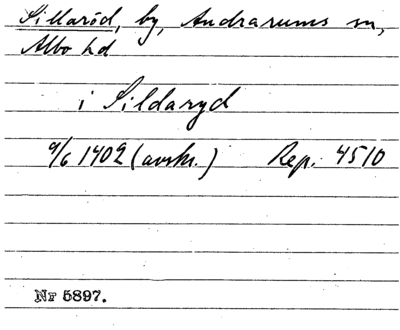 Sillaröd, by, Andrarums sn,
Albo hd
i Sildaryd
9/6 1409 (avskr.) Rep. 4510
Nr 5897.